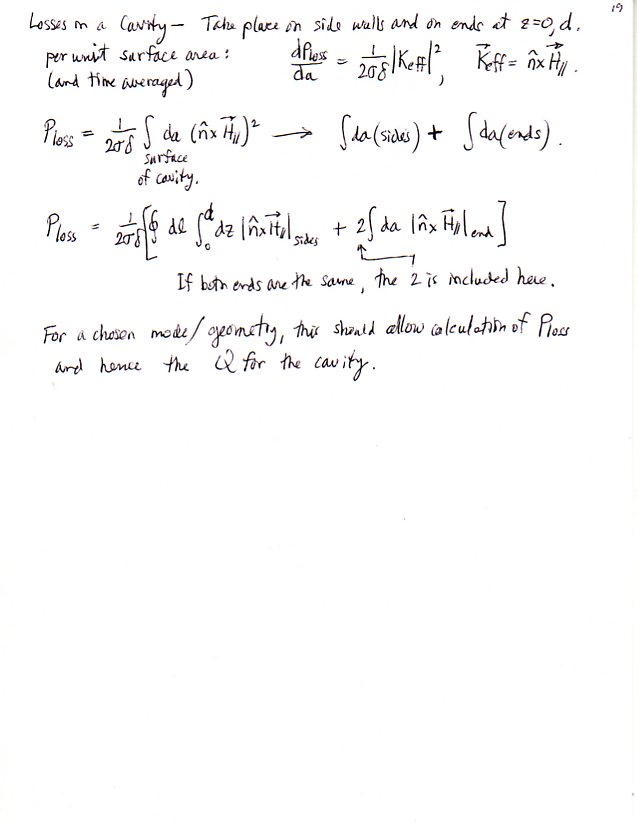 19
Losses in a Cavity – Take place on side walls and on ends at z=0, d.
per unit surface area: dPloss/da = 1/2σδ |Keff|², K⃗eff = n̂ x H⃗∥.
(and time averaged)
Ploss = 1/2σδ ∫ da (n̂ x H⃗∥)² → ∫da(sides) + ∫da(ends).
surface
of cavity.
Ploss = 1/2σδ [∮ dl ∫₀ᵈ dz |n̂ x H⃗∥|sides + 2∫ da |n̂ x H∥|end]
If both ends are the same, the 2 is included here.
For a chosen mode/geometry, this should allow calculation of Ploss
and hence the Q for the cavity.